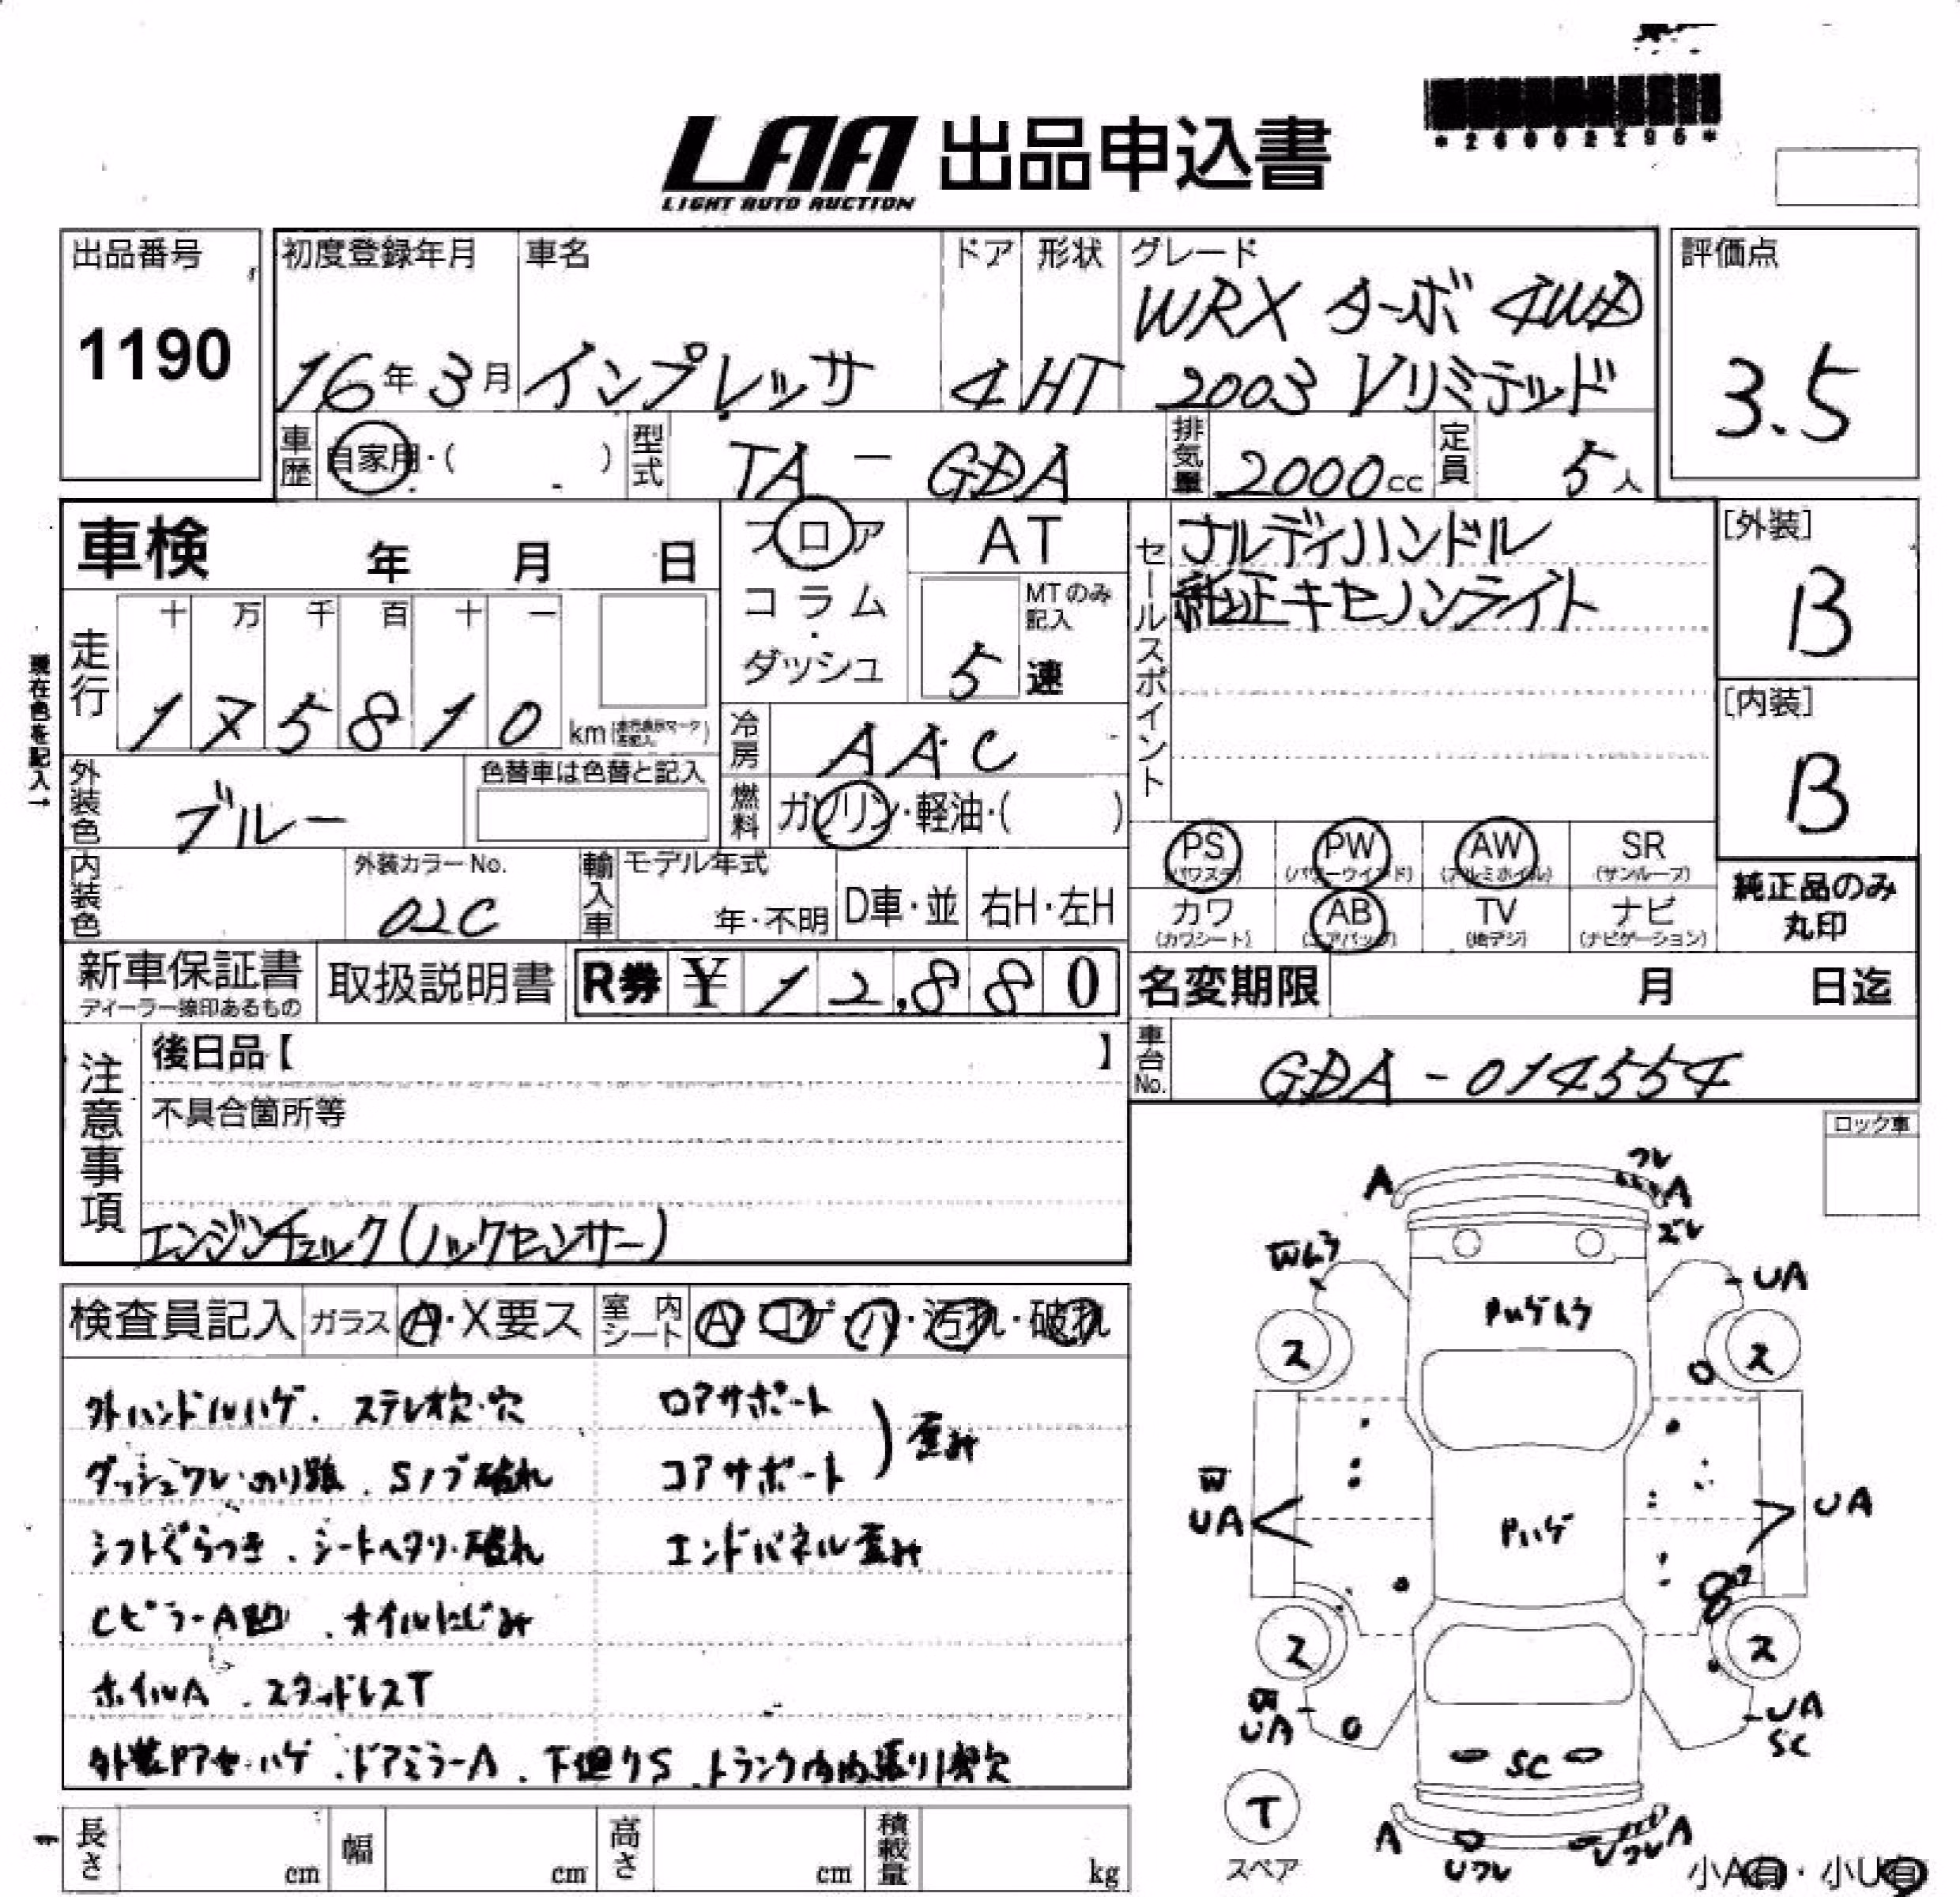 LAA 出品申込書
LIGHT AUTO AUCTION
出品番号
1190
初度登録年月
16年3月
車名
インプレッサ
ドア
4
形状
HT
グレード
WRX ターボ 4WD
2003 Vリミテッド
評価点
3.5
車歴
自家用・( )
型式
TA - GDA
排気量
2000cc
定員
5人
車検 年 月 日
フロア
コラム
ダッシュ
AT
MTのみ記入
5速
セールスポイント
ナルディハンドル
純正キセノンライト
[外装]
B
[内装]
B
現在色を記入→
走行
十 万 千 百 十 一
1 7 5 8 1 0 km
冷房
AAC
燃料
ガソリン・軽油・( )
外装色
ブルー
色替車は色替と記入
内装色
外装カラーNo.
02C
輸入車
モデル年式
年・不明
D車・並
右H・左H
PS (パワステ)
PW (パワーウインド)
AW (アルミホイル)
SR (サンルーフ)
カワ (カワシート)
AB (エアバッグ)
TV (地デジ)
ナビ (ナビゲーション)
純正品のみ
丸印
新車保証書
ディーラー捺印あるもの
取扱説明書
R券 ¥ 12,880
名変期限 月 日迄
車台No.
GDA-014554
注意事項
後日品【 】
不具合箇所等
エンジンチェック(ノックセンサー)
ロック車
検査員記入
ガラス
A・X要ス
室内シート
A・コゲ・ハ・汚れ・破れ
外ハンドルハゲ. ステレオ欠・穴
ロアサポート
コアサポート
)歪み
ダッシュワレ・のり跡. Sノブ破れ
シフトぐらつき. シートヘタリ・破れ
エンドパネル歪み
CピラーA凹. オイルにじみ
ホイルA. スタッドレスT
外装Pアセ・ハゲ. ドアミラーA. 下廻りS. トランク内内張り1部欠
A
ワレ
A
ズレ
UA
2
2
UA
UA
Pハゲ
2
2
UA
UA
SC
SC
T
スペア
A
Uワレ
Uワレ
A
小A有・小U有
長さ cm
幅 cm
高さ cm
積載量 kg